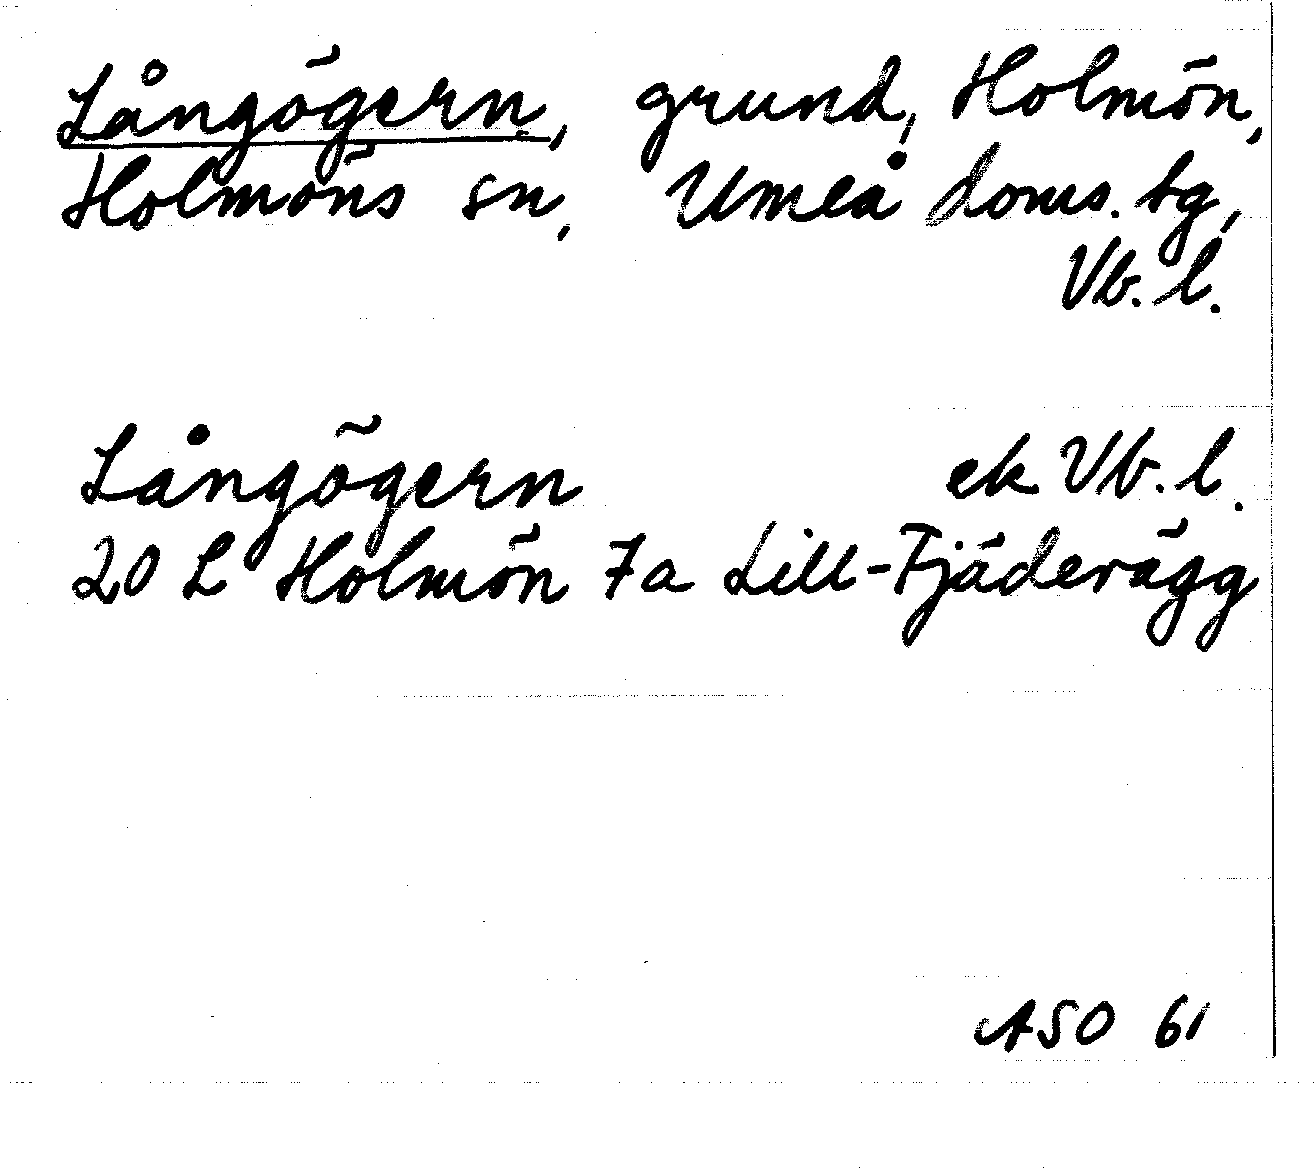 Långögern, grund, Holmön,
Holmöns sn, Umeå doms. tg,
Vb. l.
Långögern ek Vb. l.
20 L Holmön 7a Lill-Fjäderägg
ASO 61